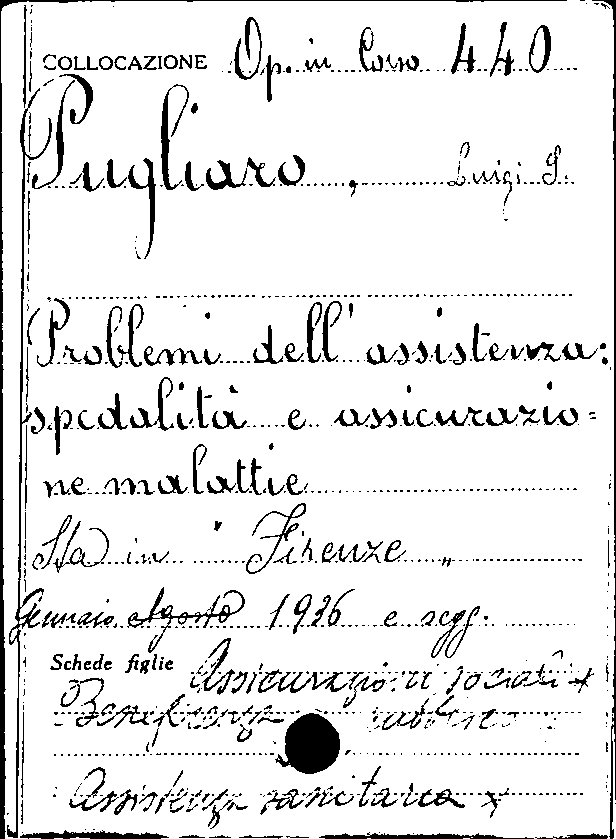 COLLOCAZIONE Op. in Corso 440
Pugliaro, Luigi S.
Problemi dell'assistenza:
spedalità e assicurazio=
ne malattie
Sta in "Firenze"
Gennaio Agosto 1936 e segg.
Schede figlie Assicurazioni sociali x
Beneficenza pubblica
Assistenza sanitaria x